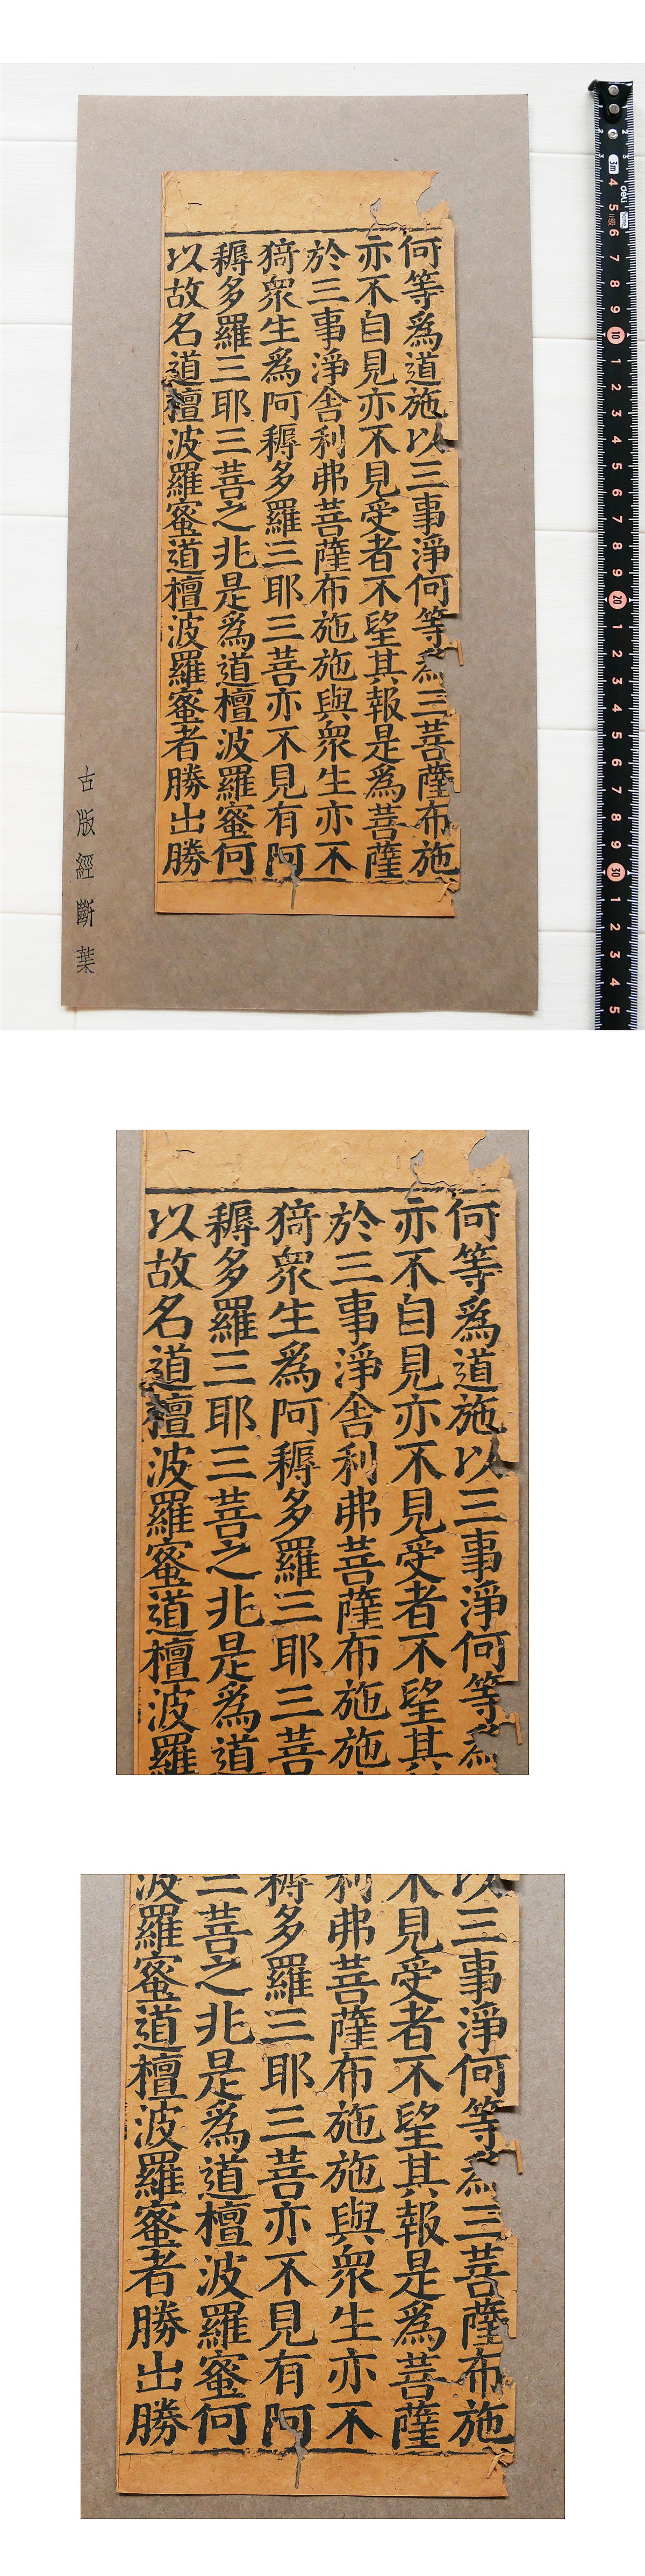 何等為道施以三事淨何等為三菩薩布施
亦不自見亦不見受者不望其報是為菩薩
於三事淨舍利弗菩薩布施施與衆生亦不
猗衆生為阿耨多羅三耶三菩亦不見有阿
耨多羅三耶三菩之兆是為道檀波羅蜜何
以故名道檀波羅蜜道檀波羅蜜者勝出勝
古版經斷葉
3m
deli
2 3 4 5 6 7 8 9 10 1 2 3 4 5 6 7 8 9 20 1 2 3 4 5 6 7 8 9 30 1 2 3 4 5
何等為道施以三事淨何等為
亦不自見亦不見受者不望其
於三事淨舍利弗菩薩布施施
猗衆生為阿耨多羅三耶三菩
耨多羅三耶三菩之兆是為道
以故名道檀波羅蜜道檀波羅
以三事淨何等為三菩薩布施
不見受者不望其報是為菩薩
利弗菩薩布施施與衆生亦不
耨多羅三耶三菩亦不見有阿
三菩之兆是為道檀波羅蜜何
波羅蜜道檀波羅蜜者勝出勝